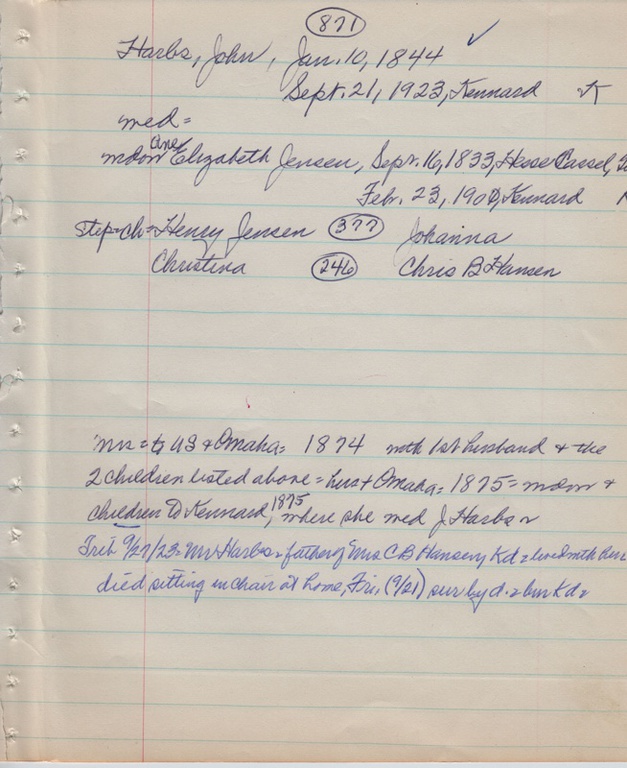 871
Harbs, John, Jan. 10, 1844 ✓
Sept. 21, 1923, Kennard K
med =
Ane
Elizabeth Jensen, Sept. 16, 1833, Hesse Cassel,
Febr. 23, 190 Kennard
step-ch = Henry Jensen 377 Johanna
Christina 246 Chris B Hansen
Mrs = to US & Omaha = 1874 with 1st husband & the
2 children listed above = hus + Omaha = 1875 = widow &
children to Kennard, 1875 where she med J Harbs =
Trib 9/27/23 = Mr Harbs = father of Mrs C B Hansen, Kd = lived with her
died sitting in chair at home, Fri, (9/21) sur by d. = bur Kd =